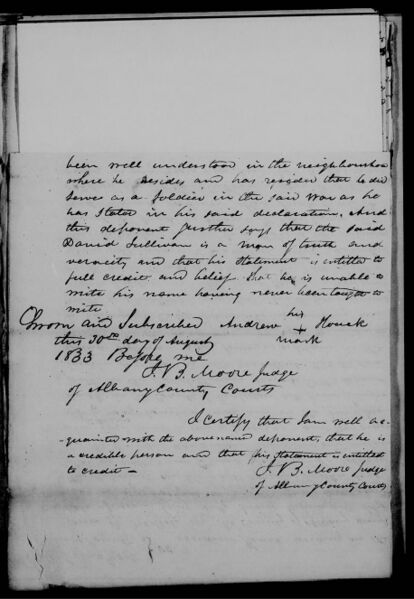 been well understood in the neighbourhood
where he resides and has resided that he did
serve as a Soldier in the said War as he
has stated in his said declaration. And
this deponent further says that the said
David Sullivan is a Man of truth and
veracity and that his statement is entitled to
full credit and belief that he is unable to
write his name having never been taught to
write
Sworn and Subscribed Andrew his Houck
this 30th day of August + mark
1833 Before me
J. B. Moore Judge
of Albany County Courts
I certify that I am well ac-
quainted with the above named deponent, that he is
a credible person and that his statement is entitled
to credit -
J. B. Moore Judge
of Albany County Courts